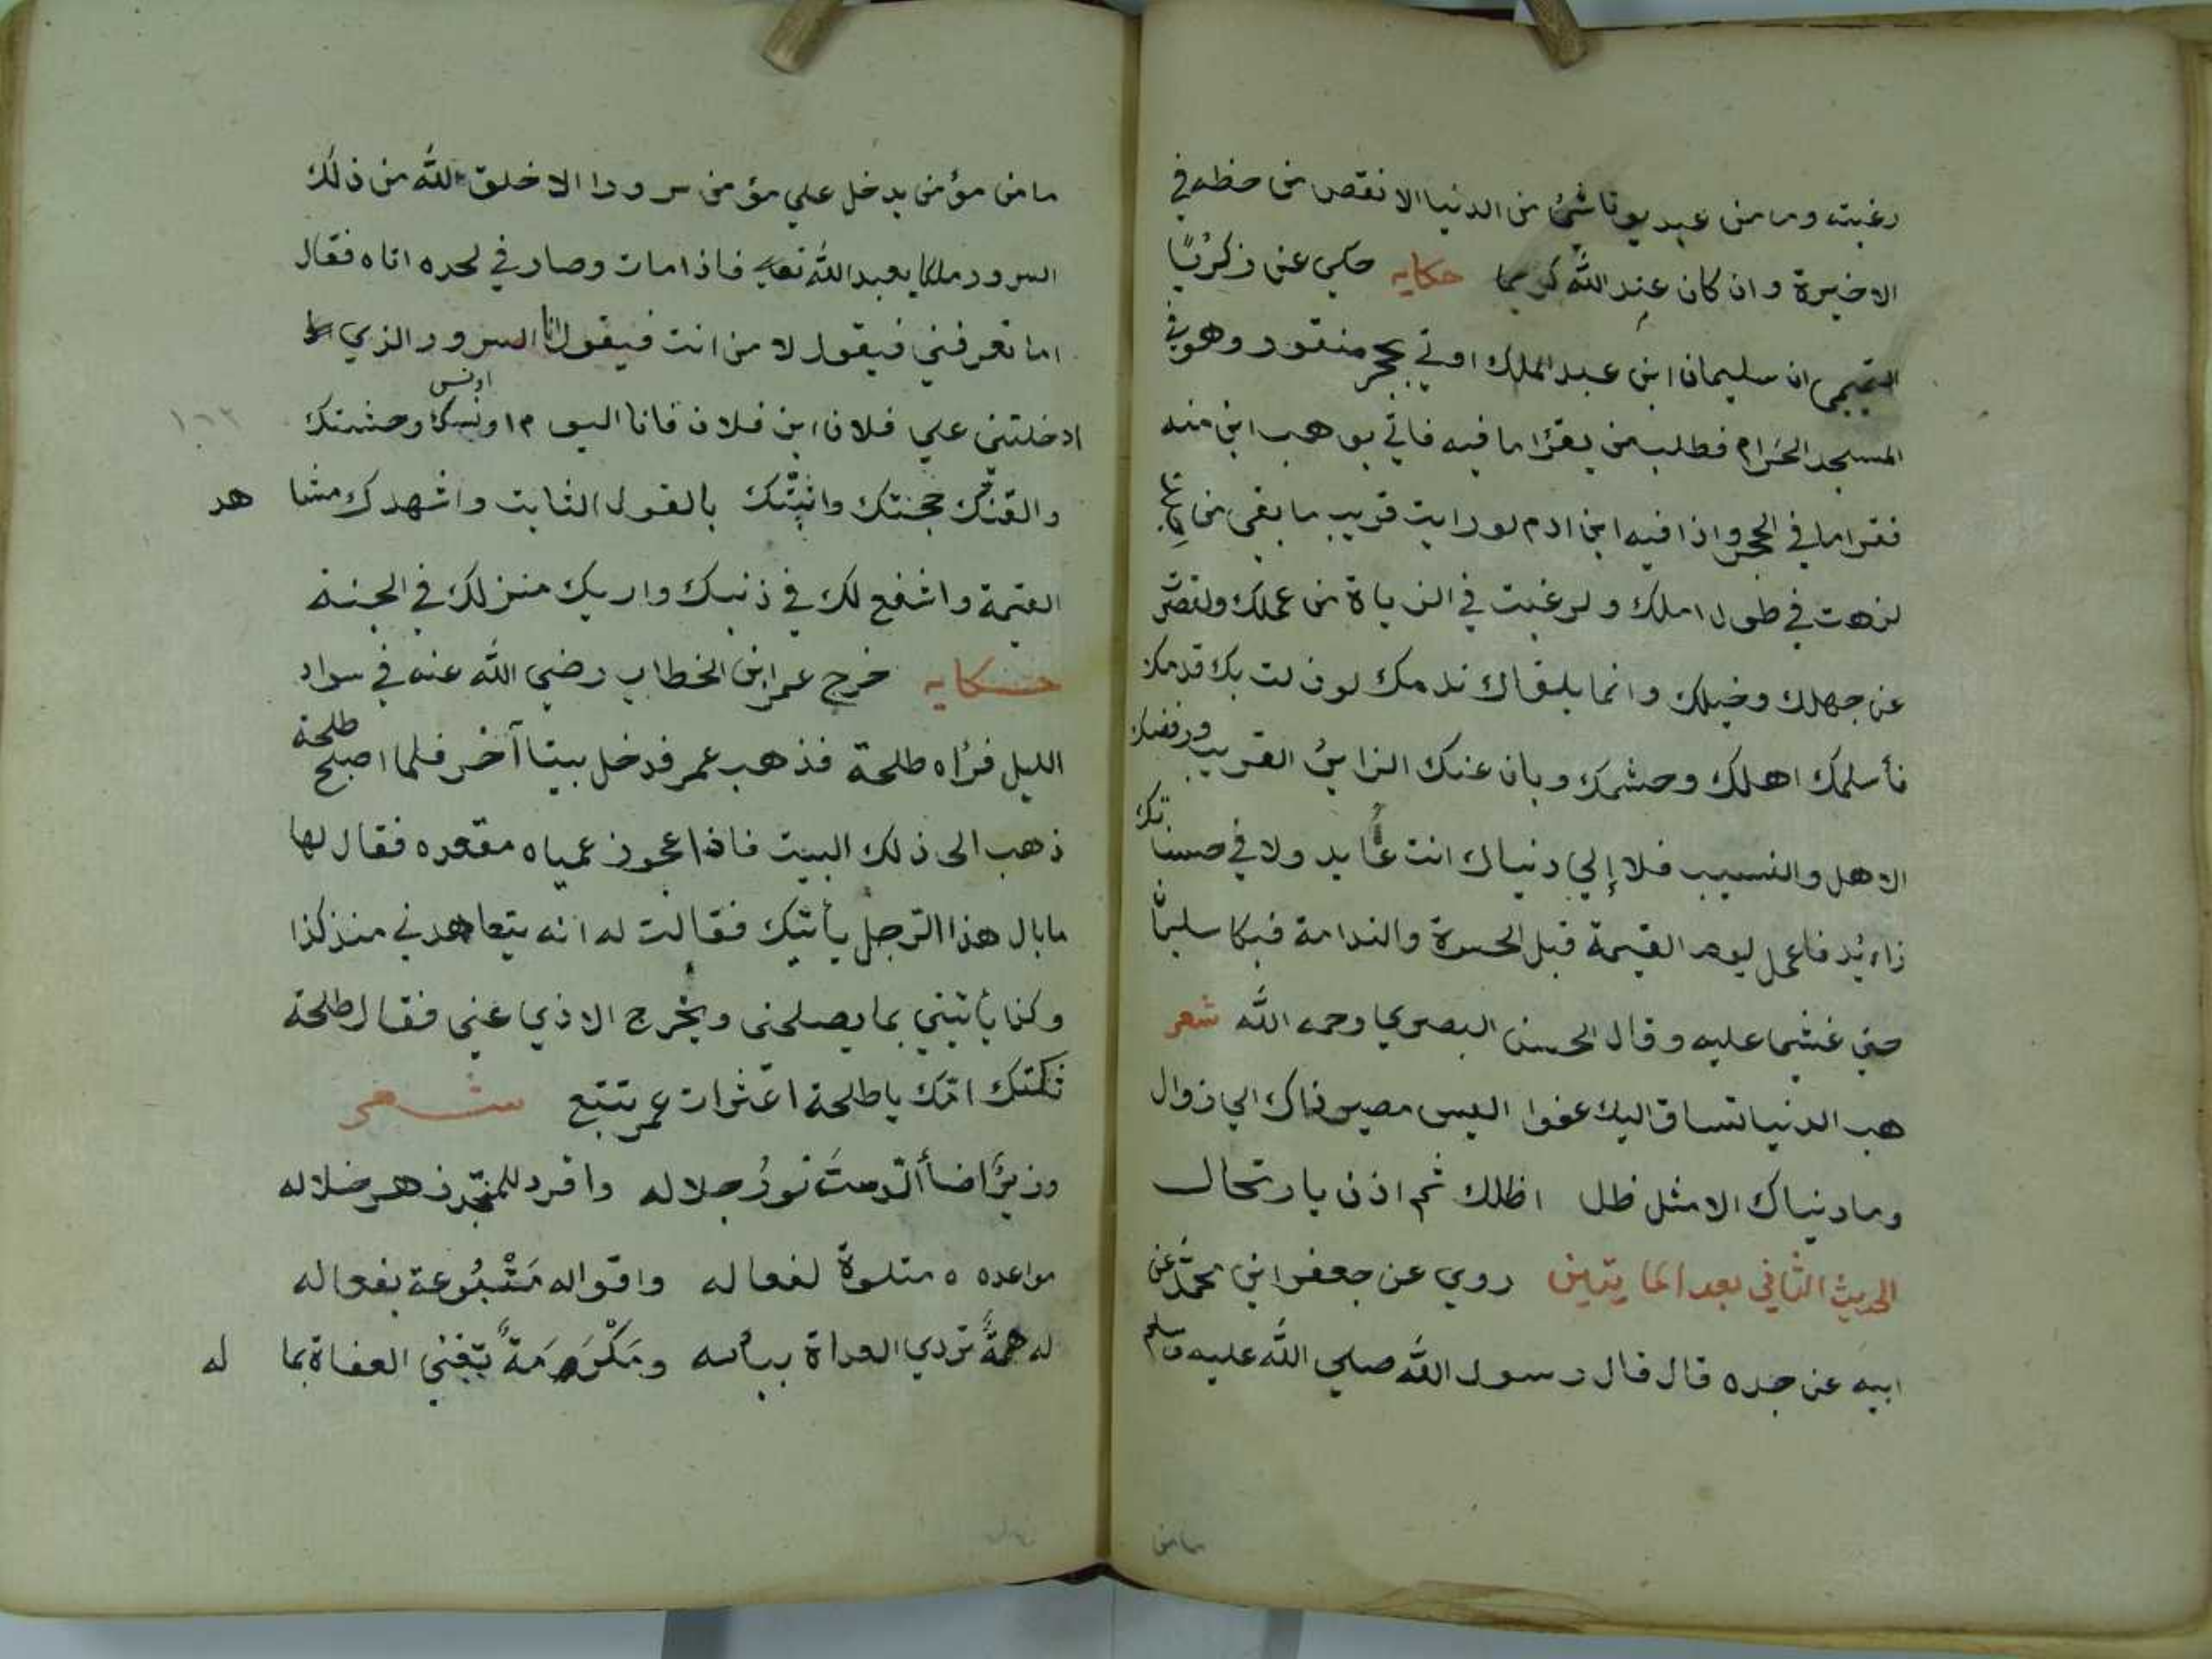 رغبته وما من عبد يوتا شئ من الدنيا الا نقص من حظه في
الاخيرة وان كان عند الله كريما حكايه حكي عن زكريا
التميمي ان سليمان ابن عبد الملك اوتي بحجر منقور وهو في
المسجد الحرام فطلب من يقرا ما فيه فاتي بوهب ابن منبه
فقرا ما في الحجر واذا فيه ابن ادم لو رايت قريب ما بقي من
لزهدت في طول املك ولرغبت في الزياة من عملك ولقصر
عن جهلك وحيلك وانما يلقاك ندمك لو زلت بك قدمك
فأسلمك اهلك وحشمك وبان عنك الزاير القريب ورفضك
الاهل والنسيب فلا إلي دنياك انت عايد ولا في حسناتك
زايد فاعمل ليوم القيمة قبل الحسرة والندامة فبكا سليمان
حتي غشي عليه وقال الحسن البصري رحمه الله شعر
هب الدنيا تساق اليك عفوا اليس مصير ذاك الي زوال
وما دنياك الا مثل ظل اظلك ثم اذن بارتحال
الحديث الثاني بعد المايتين روي عن جعفر ابن محمد عن
ابيه عن جده قال قال رسول الله صلي الله عليه وسلم
مامن
ما من مؤمن يدخل علي مؤمن سرورا الا خلق الله من ذلك
السرور ملكا يعبد الله تعالي فاذا مات وصار في لحده اتاه فقال
اما تعرفني فيقول لا من انت فيقول انا السرور الذي
ادخلتني علي فلان ابن فلان فانا اليوم اونس وحشتك
والقنك حجتك واثبتك بالقول الثابت واشهدك مشا هد
القيمة واشفع لك في ذنبك واريك منزلك في الجنة
حكايه خرج عمر ابن الخطاب رضي الله عنه في سواد
الليل فرأه طلحة فذهب عمر فدخل بيتا آخر فلما اصبح طلحة
ذهب الى ذلك البيت فاذا عجوز عمياه مقعده فقال لها
ما بال هذا الرجل يأتيك فقالت له انه يتعاهدني منذ كذا
وكذا يأتيني بما يصلحني ويخرج الاذي عني فقال طلحة
ثكلتك امك يا طلحة اعثرات عمر تتبع شعر
وزيرٌ اضأ الدست نور جلاله وافرد للمجد زهر خلاله
مواعده متلوة لفعاله واقواله متبوعة بفعاله
له همة تردي العداة ببأسه ومكرمة تغني العفاة بما له